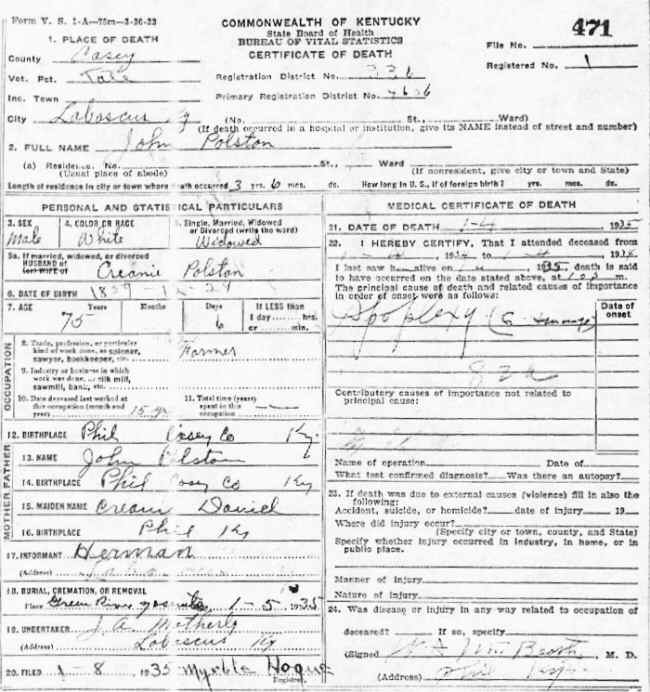 Form V. S. 1-A—75m—3-26-33
COMMONWEALTH OF KENTUCKY
State Board of Health
BUREAU OF VITAL STATISTICS
CERTIFICATE OF DEATH
471
File No.
Registered No. 1
1. PLACE OF DEATH
County Casey
Vot. Pct. Tate
Inc. Town
City Labascus Ky
Registration District No. 236
Primary Registration District No.
(No. St., Ward)
(If death occurred in a hospital or institution, give its NAME instead of street and number)
2. FULL NAME John Polston
(a) Residence. No. St., Ward
(Usual place of abode) (If nonresident, give city or town and State)
Length of residence in city or town where death occurred 3 yrs. 6 mos. ds. How long in U. S., if of foreign birth? yrs. mos. ds.
PERSONAL AND STATISTICAL PARTICULARS
3. SEX Male
4. COLOR OR RACE White
5. Single, Married, Widowed or Divorced (write the word) Widowed
5a. If married, widowed, or divorced
HUSBAND of
(or) WIFE of Creanie Polston
6. DATE OF BIRTH
7. AGE Years Months Days If LESS than
75 6 1 day hrs.
or min.
OCCUPATION
8. Trade, profession, or particular
kind of work done, as spinner,
sawyer, bookkeeper, etc. Farmer
9. Industry or business in which
work was done, as silk mill,
sawmill, bank, etc.
10. Date deceased last worked at
this occupation (month and
year)
11. Total time (years)
spent in this
occupation
12. BIRTHPLACE Phil Casey Co Ky.
FATHER
13. NAME John Polston
14. BIRTHPLACE Phil Casey Co Ky
MOTHER
15. MAIDEN NAME Cream Daniel
16. BIRTHPLACE Phil Ky
17. INFORMANT Herman
(Address)
18. BURIAL, CREMATION, OR REMOVAL
Place Green River 1-5 1935
19. UNDERTAKER J. A.
(Address) Labascus Ky
20. FILED 1-8 1935 Myrtle Hogue
Registrar
MEDICAL CERTIFICATE OF DEATH
21. DATE OF DEATH 1-4 1935
22. I HEREBY CERTIFY, That I attended deceased from
I last saw h alive on 1935, death is said
to have occurred on the date stated above, at m.
The principal cause of death and related causes of importance
in order of onset were as follows:
Date of
onset
Apoplexy
82a
Contributory causes of importance not related to
principal cause:
Name of operation Date of
What test confirmed diagnosis? Was there an autopsy?
23. If death was due to external causes (violence) fill in also the
following:
Accident, suicide, or homicide? date of injury 19
Where did injury occur?
(Specify city or town, county, and State)
Specify whether injury occurred in industry, in home, or in
public place.
Manner of injury
Nature of injury
24. Was disease or injury in any way related to occupation of
deceased? If so, specify
(Signed) M. D.
(Address) Phil Ky.